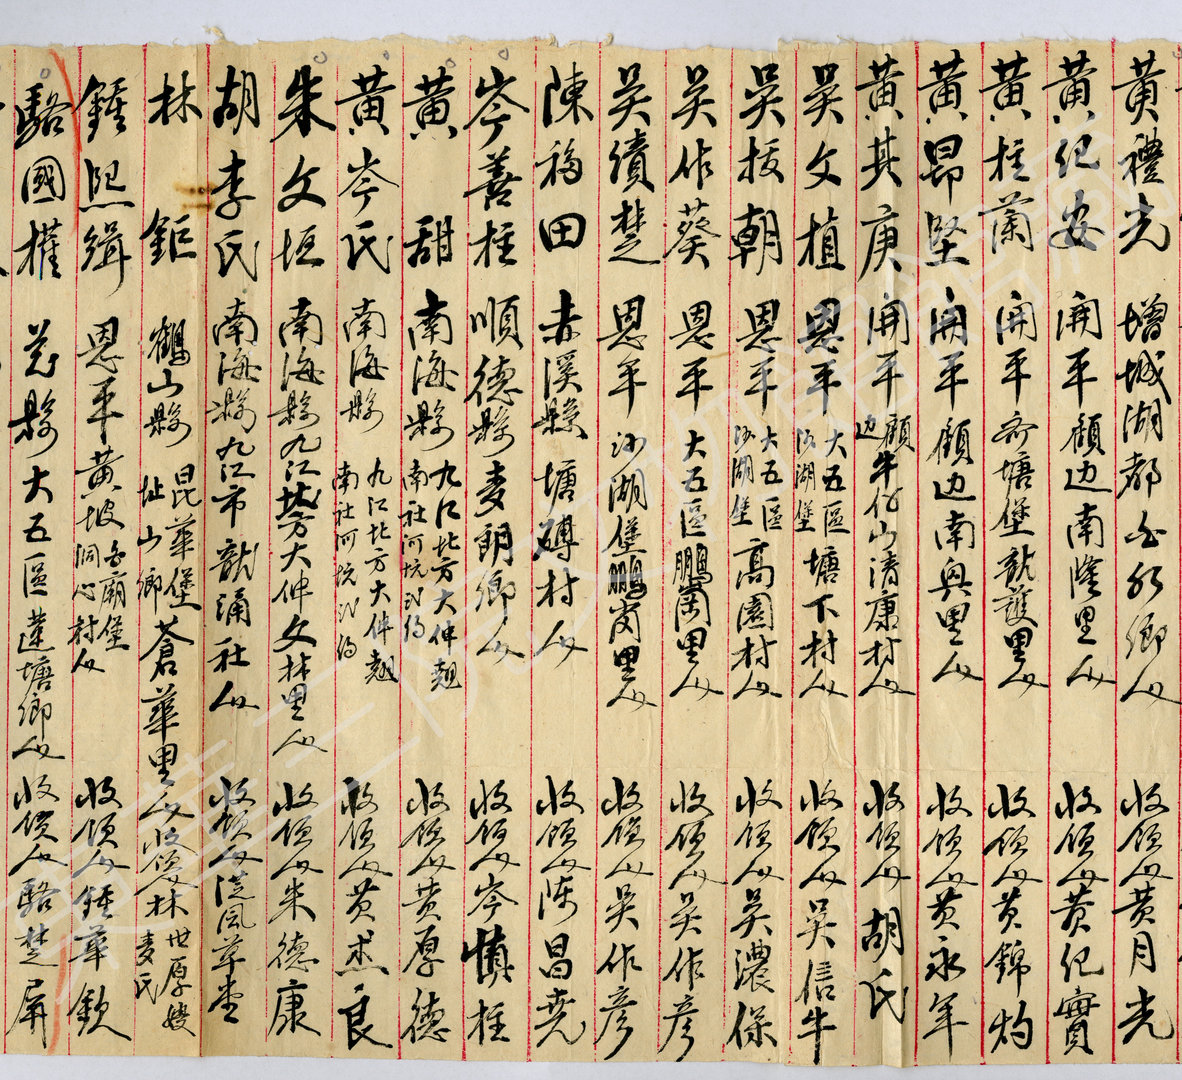 黄禮光 增城湖都白水鄉人 收領人黄月光
黄纪安 開平顧边南隆里人 收領人黄纪實
黄柱蘭 開平齐塘堡龍護里人 收領人黄錦灼
黄昂堅 開平顧边南興里人 收領人黄永年
黄其庚 開平顧边牛仔山清康村人 收領人胡氏
吴文植 恩平大五區沙湖堡塘下村人 收領人吴信牛
吴拔朝 恩平大五區沙湖堡高園村人 收領人吴濃保
吴作葵 恩平大五區鵬崗里人 收領人吴作彦
吴績楚 恩平沙湖堡鵬崗里人 收領人吴作彦
陳福田 赤溪縣塘磚村人 收領人陈昌尭
岑善柱 順德縣麦朗鄉人 收領人岑慎柱
黄甜 南海縣九江北方大伸翹南社河坑沙約 收領人黄厚德
黄岑氏 南海縣九江北方大伸翹南社河坑沙約 收領人黄杰良
朱文垣 南海縣九江北方大伸文林里人 收領人朱德康
胡李氏 南海縣九江市龍涌社人 收領人從風草堂
林鉅 鶴山縣昆華堡址山鄉蒼華里人 收領人林世厚嫂麦氏
鍾熙緝 恩平黄坡舍廟堡洞心村人 收領人鍾華欽
駱國權 花縣大五區蓮塘鄉人 收領人駱楚屏